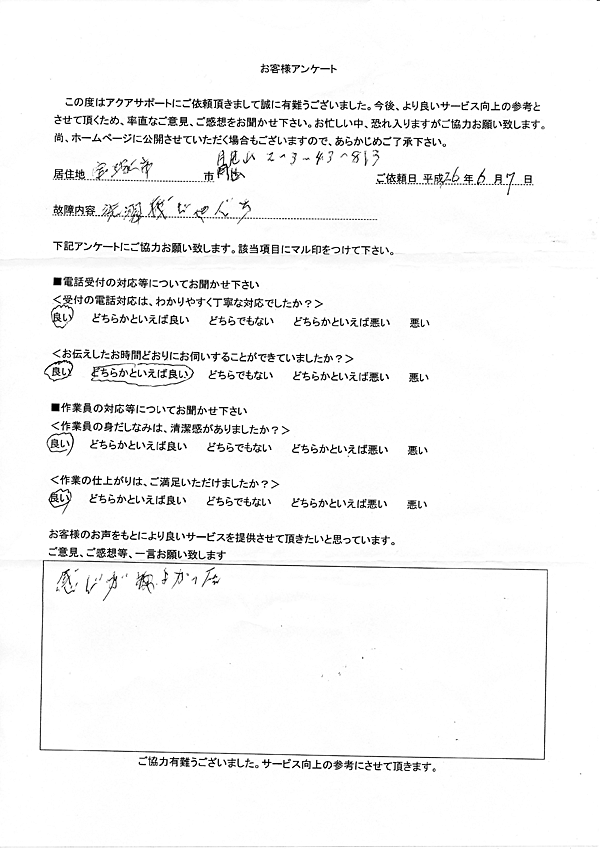 お客様アンケート
この度はアクアサポートにご依頼頂きまして誠に有難うございました。今後、より良いサービス向上の参考と
させて頂くため、率直なご意見、ご感想をお聞かせ下さい。お忙しい中、恐れ入りますがご協力お願い致します。
尚、ホームページに公開させていただく場合もございますので、あらかじめご了承下さい。
月見山 2-3-43-813
居住地 宝塚市 市 ご依頼日 平成26年 6 月 7 日
故障内容 洗濯機じゃぐち
下記アンケートにご協力お願い致します。該当項目にマル印をつけて下さい。
■電話受付の対応等についてお聞かせ下さい
<受付の電話対応は、わかりやすく丁寧な対応でしたか?>
良い どちらかといえば良い どちらでもない どちらかといえば悪い 悪い
<お伝えしたお時間どおりにお伺いすることができていましたか?>
良い どちらかといえば良い どちらでもない どちらかといえば悪い 悪い
■作業員の対応等についてお聞かせ下さい
<作業員の身だしなみは、清潔感がありましたか?>
良い どちらかといえば良い どちらでもない どちらかといえば悪い 悪い
<作業の仕上がりは、ご満足いただけましたか?>
良い どちらかといえば良い どちらでもない どちらかといえば悪い 悪い
お客様のお声をもとにより良いサービスを提供させて頂きたいと思っています。
ご意見、ご感想等、一言お願い致します
感じが よかった
ご協力有難うございました。サービス向上の参考にさせて頂きます。